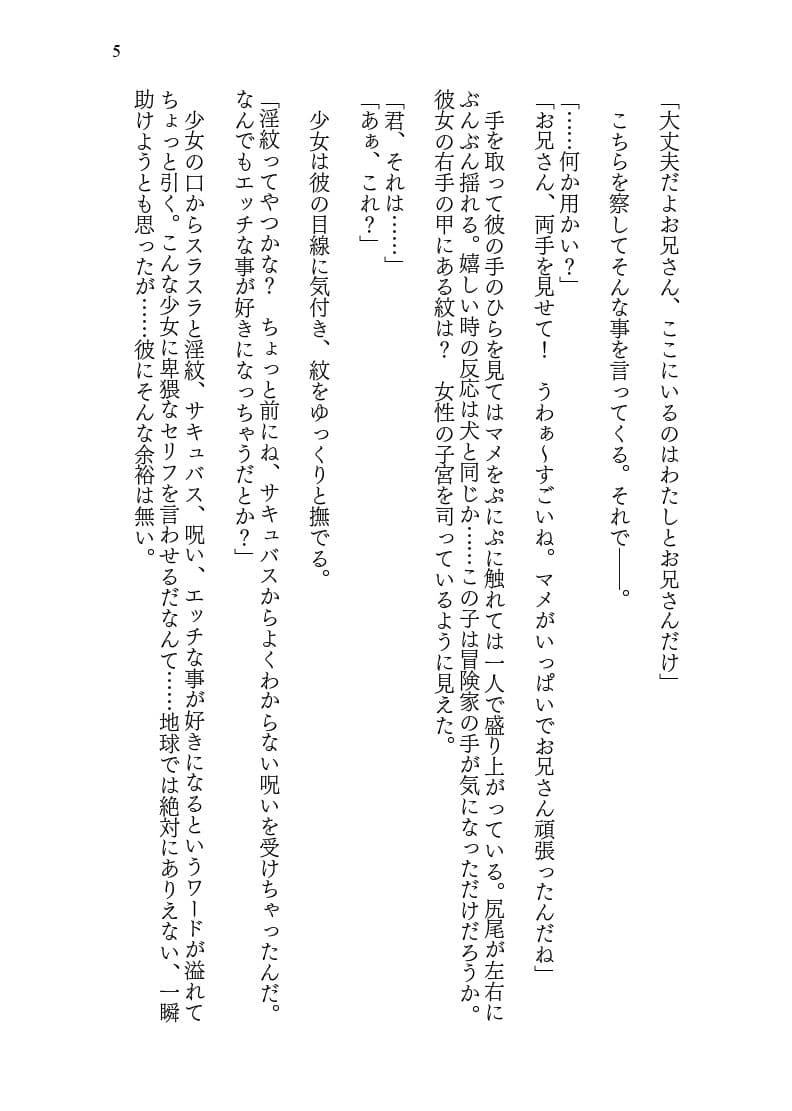 5
「大丈夫だよお兄さん、ここにいるのはわたしとお兄さんだけ」
こちらを察してそんな事を言ってくる。それで――。
「……何か用かい？」
「お兄さん、両手を見せて！　うわぁ～すごいね。マメがいっぱいでお兄さん頑張ったんだね」
手を取って彼の手のひらを見てはマメをぷにぷに触れては一人で盛り上がっている。尻尾が左右に
ぶんぶん揺れる。嬉しい時の反応は犬と同じか……この子は冒険家の手が気になっただけだろうか。
彼女の右手の甲にある紋は？　女性の子宮を司っているように見えた。
「君、それは……」
「あぁ、これ？」
少女は彼の目線に気付き、紋をゆっくりと撫でる。
「淫紋ってやつかな？　ちょっと前にね、サキュバスからよくわからない呪いを受けちゃったんだ。
なんでもエッチな事が好きになっちゃうだとか？」
少女の口からスラスラと淫紋、サキュバス、呪い、エッチな事が好きになるというワードが溢れて
ちょっと引く。こんな少女に卑猥なセリフを言わせるだなんて……地球では絶対にありえない、一瞬
助けようとも思ったが……彼にそんな余裕は無い。